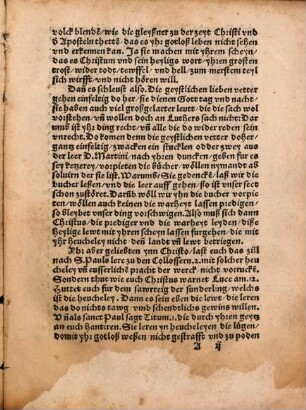 volck blends/ wie die gleyßner zu der zeyt Christi vnd
d' Aposteln thetts das es yhr gotloß leben nicht sehen
vnd erkennen kan. Ja sie machen mit yhrem scheyn/
das es Christum vnd sein heyligs wort/ yhren grosten
trost/ wider todt/ tewffel/ vnd hell/ zum merstem teyl
sich wirfft/ vnd nicht annemet.
Dan es schleust also. Die geystlichen lieben vetter
gehen einfeldig do her/ sie dienen Gott tag vnd nacht/
sie haben auch vil großgelarter leut/ die die sach wol
vorstehen/ vñ wollen doch an Luthers sach nicht: Dar
umb ist yhr ding recht/ vñ alle die do wider reden sein
vnrecht. Do komen denn die geystlichen vetter doher
gang einfeltig/ zwacken ein stucklen odder zwey aus
der leer D. Martini nach yhren duncken/ geben fur es
sey ketzerey/ vorpieten die bücher/ wöllen nymand ab
soluirn der sie list. Warumb: Sie gedenckē/ laß wir die
bucher leßen/ vnd die leer auff gehen/ so ist vnser sect
schon zustöret. Darüb wöll wir yhn die bucher vorpie
ten/ wöllen auch keinen die warheyt lassen predigen/
so bleybet vnser ding vorschwigen. Also muß sich dann
Christus/ die prediger vnd die warheyt leyden/ diße
heylige lewt mit yhrem scheyn lassen furgehen/ die mit
yhr heucheley nicht den landt vñ lewt betriegen.
Yhr aber geliebsten ym Christo/ last euch das zill
nach S. Pauls lere zu den Collossern. 2. mit solcher heu
cheley vñ eusserlichē pracht der werck nicht vorruckē.
Sondern thut wie euch Christus warnet Luce am. 12.
Huttet euch fur dem sawrteig der sunderling/ welchs
ist die heucheley. Dann es sein eben die lewt/ die leren
das do nichts tawg vmb schendlichs gewins willen.
Vñ als sanct Paul sagt Titum. 1. die durch yhren geytz
an euch hantiren. Sie leren yn heucheleyen die lügen/
domit yhr gotloß weßen nicht gestrafft vnd zu poden
A ij